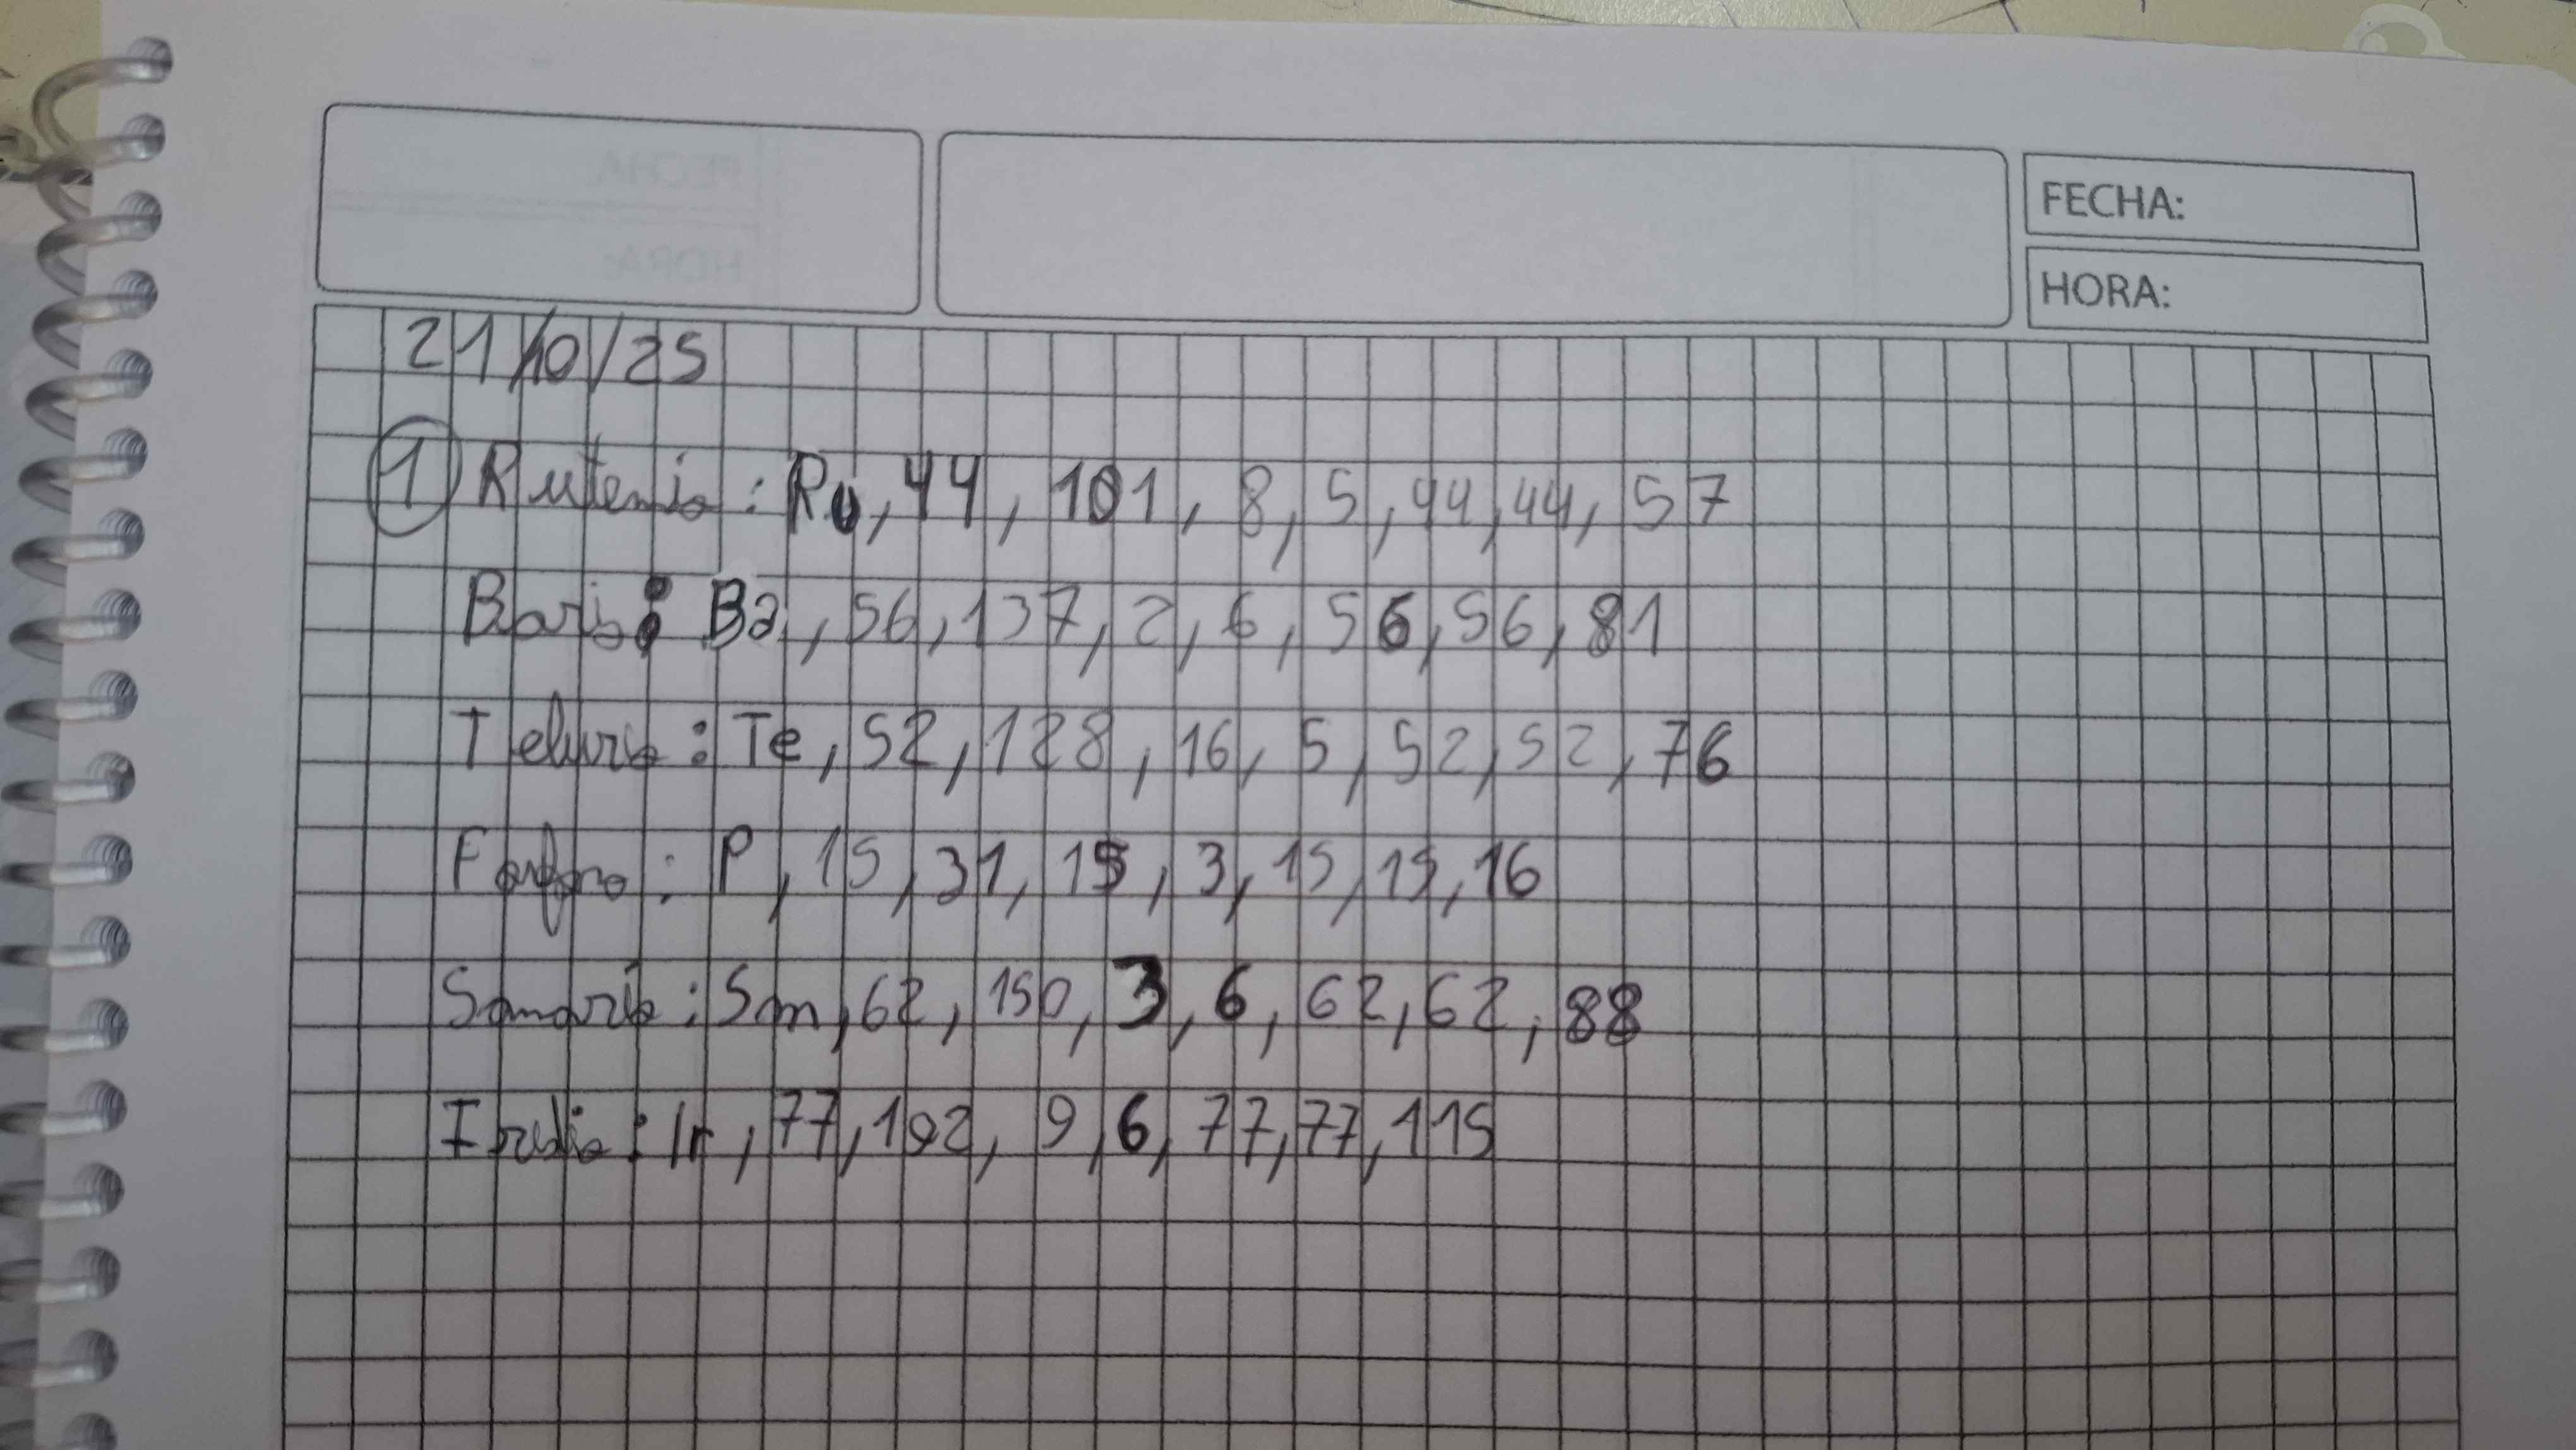 FECHA:
HORA:
21/10/25
1 Rutenio: Ru, 44, 101, 8, 5, 44, 44, 57
Bario: Ba, 56, 137, 2, 6, 56, 56, 81
Telurio: Te, 52, 128, 16, 5, 52, 52, 76
Fosforo: P, 15, 31, 15, 3, 15, 15, 16
Samario: Sm, 62, 150, 3, 6, 62, 62, 88
Iridio: Ir, 77, 192, 9, 6, 77, 77, 115